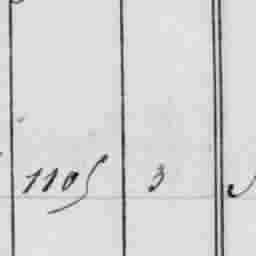 1105 3